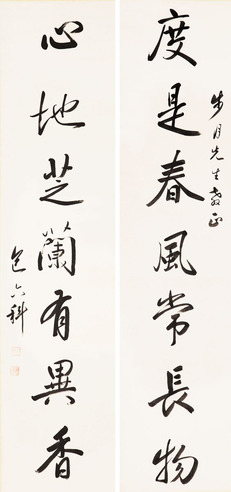 步月先生教正
度是春風常長物
心地芝蘭有異香